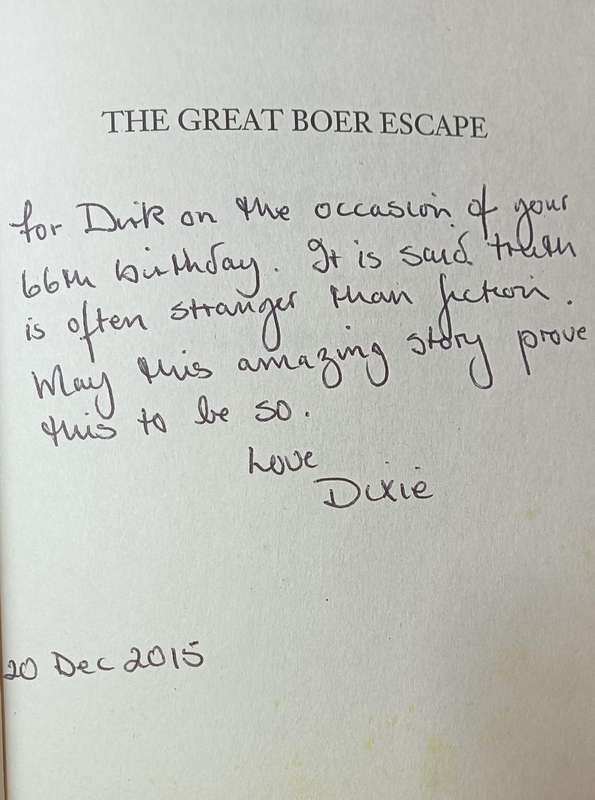 THE GREAT BOER ESCAPE
for Dirk on the occasion of your
66th birthday. It is said truth
is often stranger than fiction.
May this amazing story prove
this to be so.
Love
Dixie
20 Dec 2015